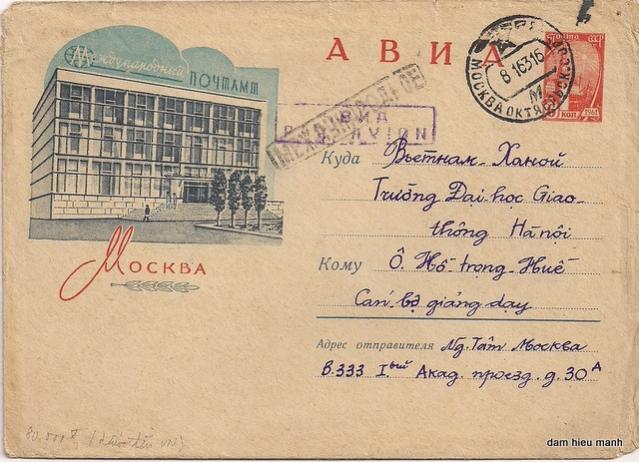 Международный
ПОЧТАМТ
АВИА
ПОЧТА СССР
КОП 1961
8 1 63 16
МОСКВА ОКТЯБРЬСК
МЕЖДУНАРОДНОЕ
АВИА
PAR AVION
Куда Вьетнам - Ханой
Trường Đại học Giao-
thông Hà nội
Кому Ô. Hồ trọng Huế
Cán bộ giảng dạy
Адрес отправителя Ng. Tâm Москва
В.333 Iый Акад. проезд. д. 30А
Москва
80.000đ
dam hieu manh